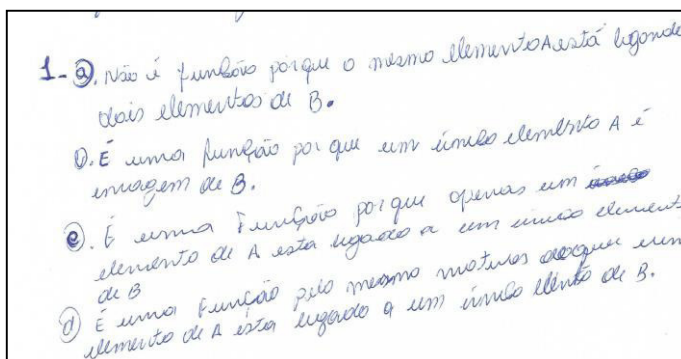 1- a). Não é função porque o mesmo elemento A está ligando
dois elementos de B.
b). É uma função por que um único elemento A é
imagem de B.
c). É uma Função porque apenas um
elemento de A esta ligado a um único element
de B
d) É uma Função pelo mesmo motivos doque um
elemento de A esta ligado a um único elento de B.